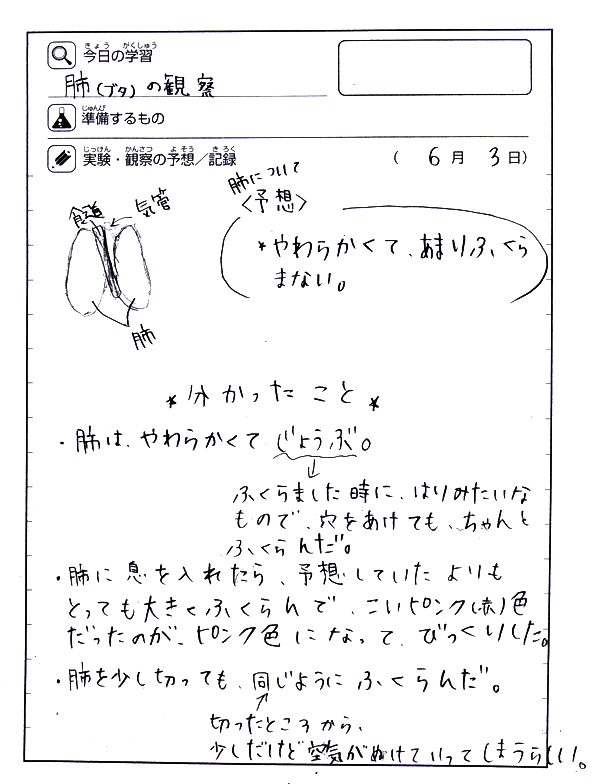 きょう がくしゅう
今日の学習
肺(ブタ)の観察
じゅんび
準備するもの
じっけん かんさつ よそう きろく
実験・観察の予想／記録
( 6月 3日)
肺について
〈予想〉
食道
気管
*やわらかくて、あまりふくら
まない。
肺
*分かったこと*
・肺は、やわらかくてじょうぶ。
ふくらました時に、はりみたいな
もので、穴をあけても、ちゃんと
ふくらんだ。
・肺に息を入れたら、予想していたよりも
とっても大きくふくらんで、こいピンク(赤)色
だったのが、ピンク色になって、びっくりした。
・肺を少し切っても、同じようにふくらんだ。
切ったところから、
少しだけど空気がぬけていってしまうらしい。